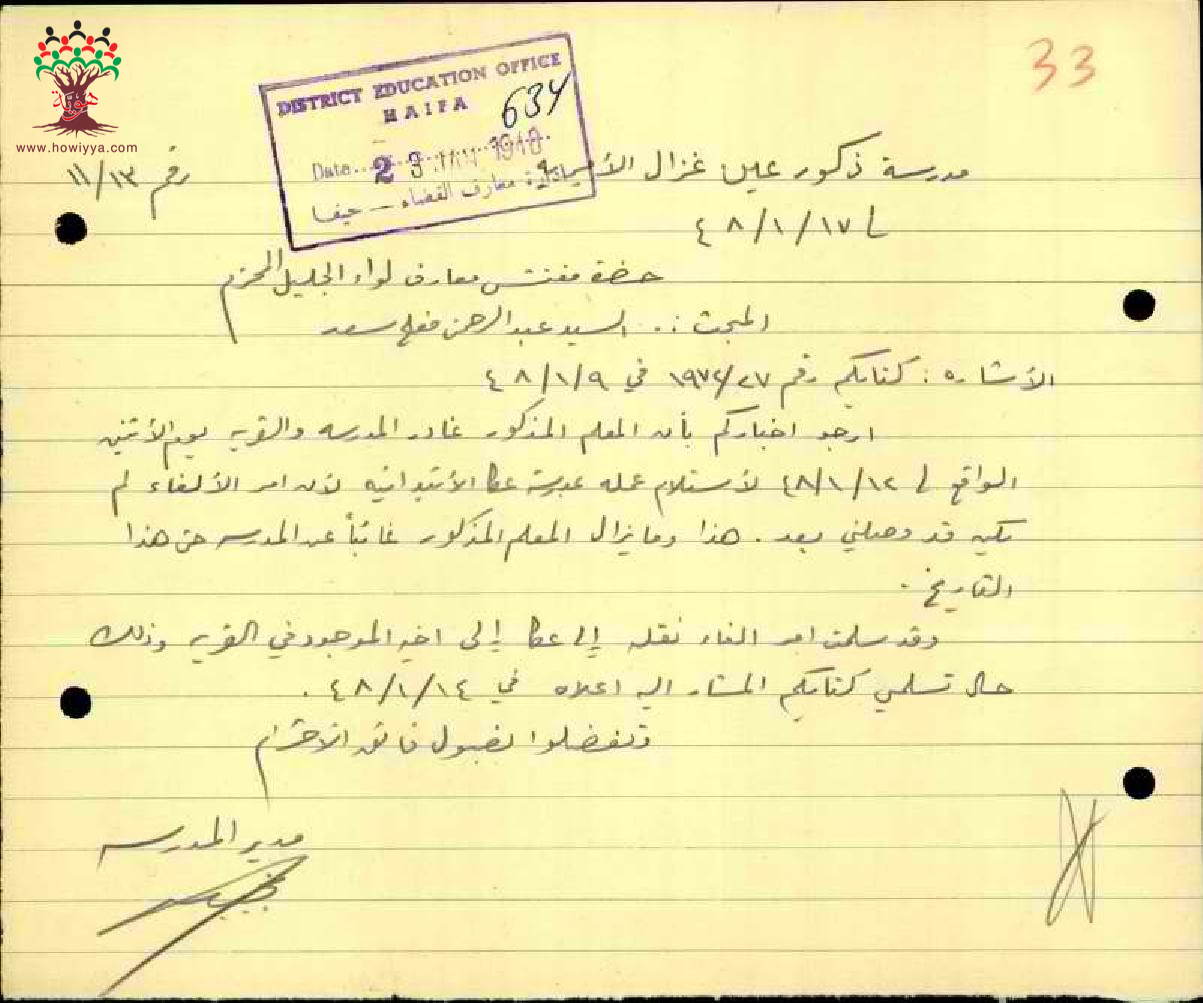 33
هوية
www.howiyya.com
DISTRICT EDUCATION OFFICE
HAIFA
634
Date 23 JAN 1948
ادارة معارف القضاء — حيفا
مدرسة ذكور عين غزال الأميرية
رقم ١١/١٣
٤٨/١/١٧
حضرة مفتش معارف لواء الجليل المحترم
المبحث :. السيد عبد الرحمن مفلح سعد
الأشاره : كتابكم رقم ١٩٧٤/٢٧ في ٤٨/١/٩
ارجو اخباركم بأن المعلم المذكور غادر المدرسه والقريه يوم الأثنين
الواقع في ٤٨/١/١٢ لأستلام عمله بمدرسة عكا الأبتدائيه لأن امر الألغاء لم
يكن قد وصلني بعد . هذا وما يزال المعلم المذكور غائباً عن المدرسه حتى هذا
التاريخ .
وقد سلمت امر الغاء نقله إلى عكا إلى اخيه الموجود في القريه وذلك
حال تسلمي كتابكم المشار اليه اعلاه في ٤٨/١/١٤ .
وتفضلوا بقبول فائق الاحترام
مدير المدرسه